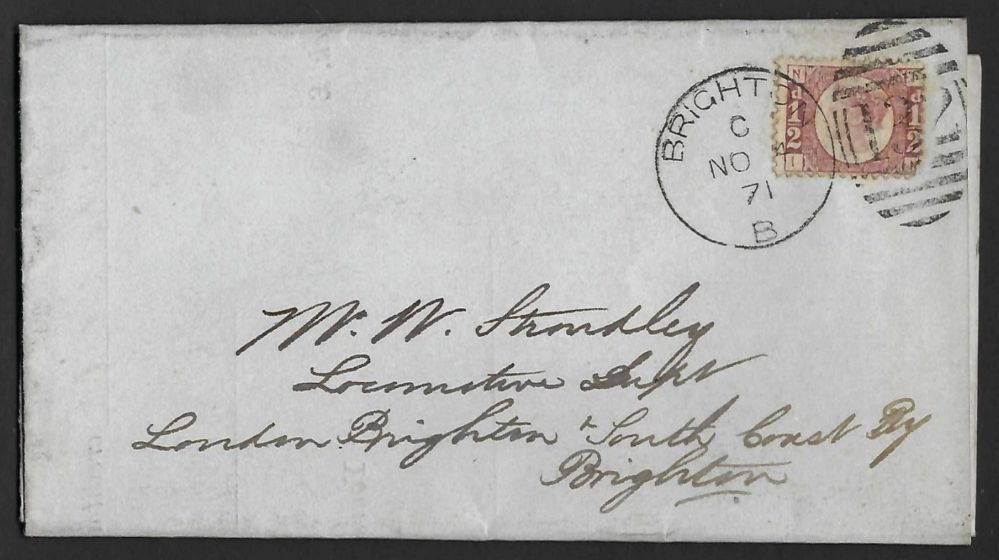 BRIGHTON
C
NO
71
B
N
d
1/2
I
d
1/2
132
Mr. W. Stroudley
Locomotive Supt
London Brighton & South Coast Ry
Brighton